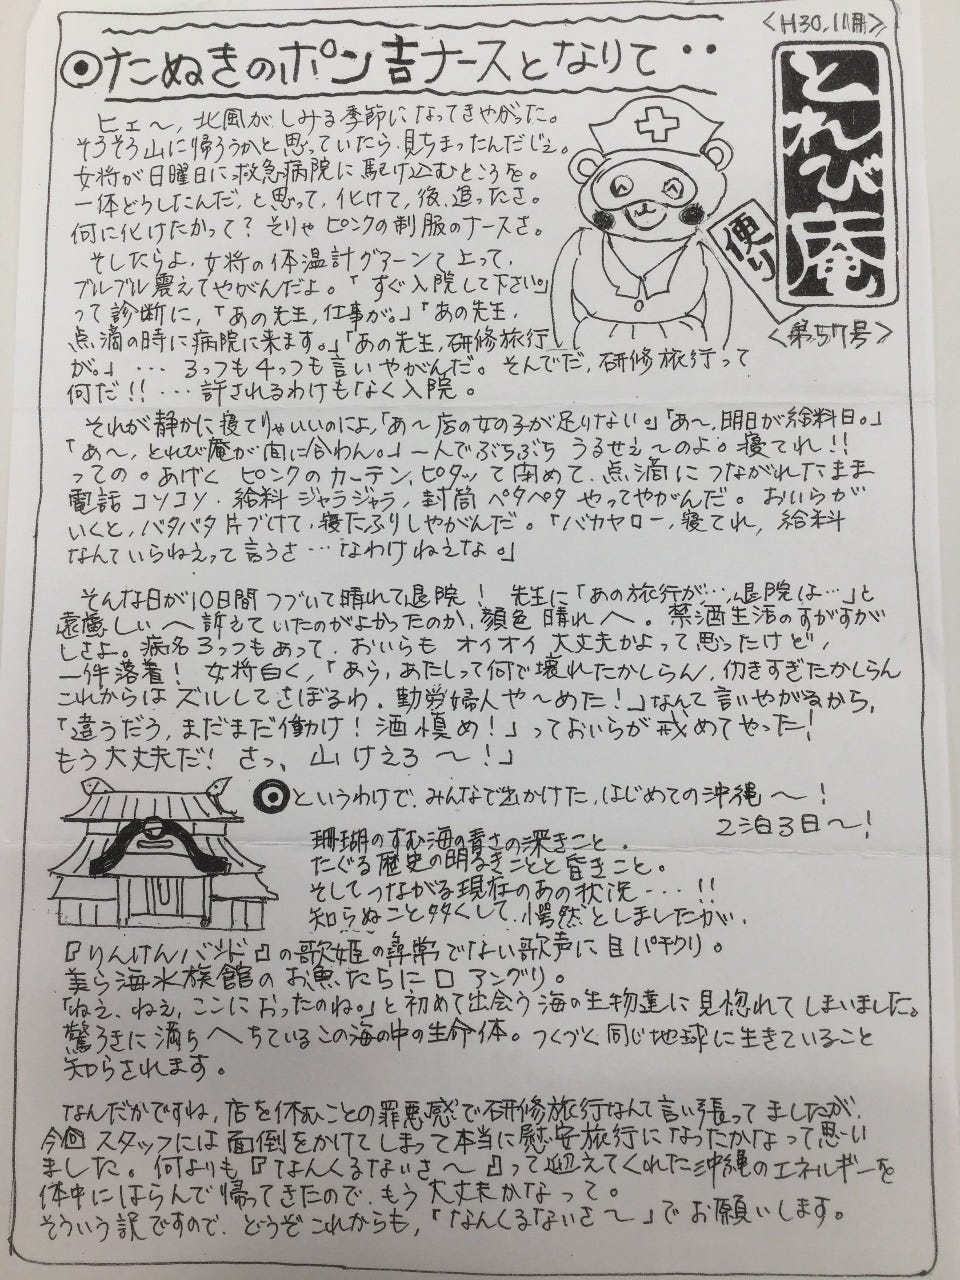 <H30.11月>
とれび庵の
便り
<第57号>
◎たぬきのポン吉ナースとなりて・・
ヒェ〜、北風がしみる季節になってきやがった。
そろそろ山に帰ろうかと思っていたら、見ちまったんだじぇ。
女将が日曜日に救急病院に駆け込むところを。
一体どうしたんだ、と思って、化けて、後、追ったさ。
何に化けたかって?そりゃピンクの制服のナースさ。
そしたらよ、女将の体温計グアーンて上って、
ブルブル震えてやがんだよ。「すぐ入院して下さい。」
って診断に、「あの先生、仕事が。」「あの先生、
点滴の時に病院に来ます。」「あの先生、研修旅行
が。」…3つも4つも言いやがんだ。そんでだ、研修旅行って
何だ!!…許されるわけもなく入院。
それが静かに寝てりゃいいのによ、「あ〜店の女の子が足りない。」「あ〜、明日が給料日。」
「あ〜、とれび庵が間に合わん。」一人でぶちぶちうるせえ〜のよ。寝てれ!!
っての。あげくピンクのカーテン、ピタッて閉めて、点滴につながれたまま
電話コソコソ・給料ジャラジャラ、封筒ペタペタやってやがんだ。おいらが
いくと、バタバタ片づけて、寝たふりしやがんだ。「バカヤロー、寝てれ、給料
なんていらねえって言うさ…なわけねえな。」
そんな日が10日間つづいて晴れて退院!先生に「あの旅行が…、退院は…」と
遠慮しぃへ訴えていたのがよかったのか、顔色晴れへ。禁酒生活のすがすが
しさよ。病名3つもあって、おいらもオイオイ大丈夫かよって思ったけど、
一件落着!女将曰く、「あぅ、あたしって何で壊れたかしらん、仂きすぎたかしらん
これからはズルしてさぼるわ。勤労婦人や〜めた!」なんて言いやがるから、
「違うだろ、まだまだ働け!酒慎め!」っておいらが戒めてやった!
もう大丈夫だ!さっ、山けえろ〜!」
◎というわけで、みんなで出かけた、はじめての沖縄〜!
2泊3日〜!
珊瑚のすむ海の青さの深きこと。
たぐる歴史の明るきことと昏きこと。
そしてつながる現在のあの状況…!!
知らぬこと多くして、愕然としましたが、
『りんけんバンド』の歌姫の尋常でない歌声に目パチクリ。
美ら海水族館のお魚たちに口アングリ。
「ねえ、ねえ、ここにおったのね。」と初めて出会う海の生物達に見惚れてしまいました。
驚ろきに満ちへちているこの海の中の生命体。つくづく同じ地球に生きていること
知らされます。
なんだかですね、店を休むことの罪悪感で研修旅行なんて言い張ってましたが、
今回スタッフには面倒をかけてしまって本当に慰安旅行になったかなって思い
ました。何よりも『なんくるないさ〜』って迎えてくれた沖縄のエネルギーを
体中にはらんで帰ってきたので、もう大丈夫かなって。
そういう訳ですので、どうぞこれからも、「なんくるないさ〜」でお願いします。